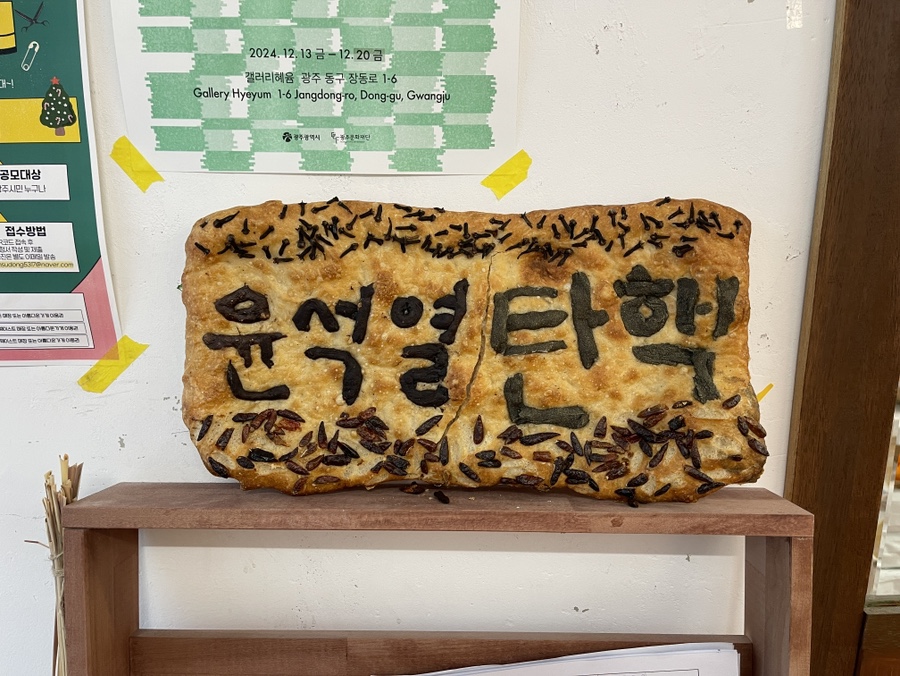 2024. 12. 13 금 – 12. 20 금
갤러리혜윰 광주 동구 장동로 1-6
Gallery Hyeyum 1-6 Jangdong-ro, Dong-gu, Gwangju
광주광역시 광주문화재단
공모대상
광주시민 누구나
접수방법
QR코드 접속 후
윤석열 탄핵